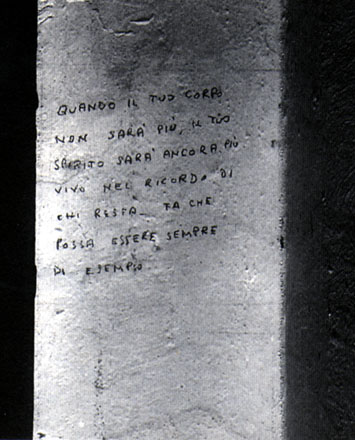 QUANDO IL TUO CORPO
NON SARA' PIÙ, IL TUO
SPIRITO SARA' ANCORA PIÙ
VIVO NEL RICORDO DI
CHI RESTA - FA CHE
POSSA ESSERE SEMPRE
DI ESEMPIO